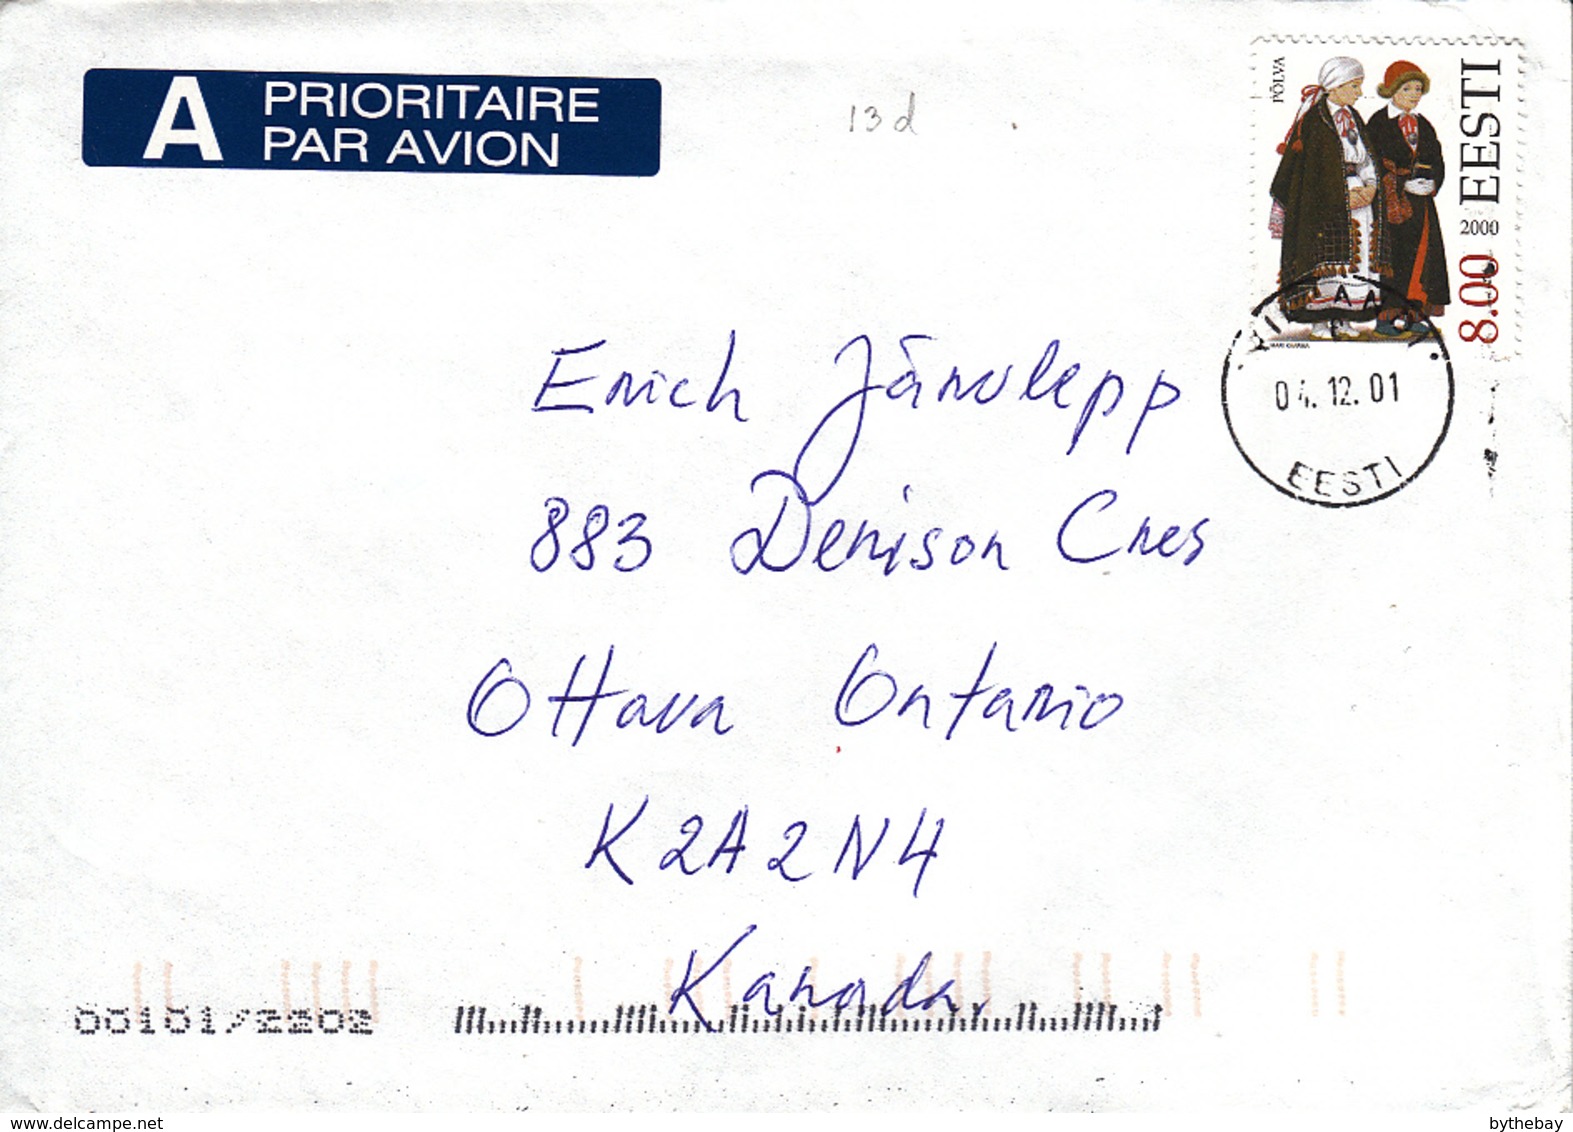 A PRIORITAIRE
PAR AVION
13d
PÕLVA
EESTI
2000
8.00
MARI KAARMA
04.12.01
EESTI
Erich Järvlepp
883 Denison Cres
Ottava Ontario
K2A2N4
Kanada.
00101/2202
www.delcampe.net
bythebay